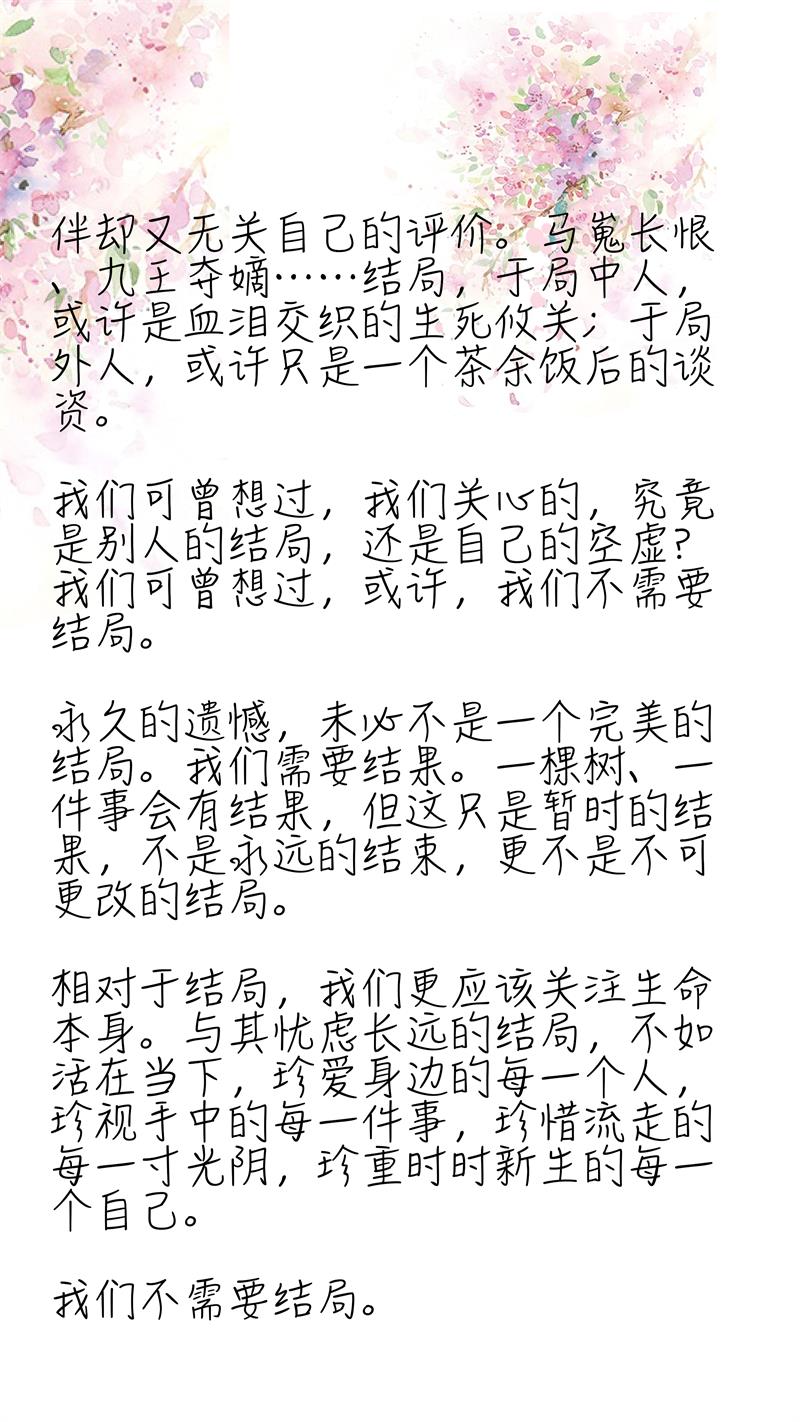 伴却又无关自己的评价。马嵬长恨
、九王夺嫡……结局，于局中人，
或许是血泪交织的生死攸关；于局
外人，或许只是一个茶余饭后的谈
资。
我们可曾想过，我们关心的，究竟
是别人的结局，还是自己的空虚？
我们可曾想过，或许，我们不需要
结局。
永久的遗憾，未必不是一个完美的
结局。我们需要结果。一棵树、一
件事会有结果，但这只是暂时的结
果，不是永远的结束，更不是不可
更改的结局。
相对于结局，我们更应该关注生命
本身。与其忧虑长远的结局，不如
活在当下，珍爱身边的每一个人，
珍视手中的每一件事，珍惜流走的
每一寸光阴，珍重时时新生的每一
个自己。
我们不需要结局。